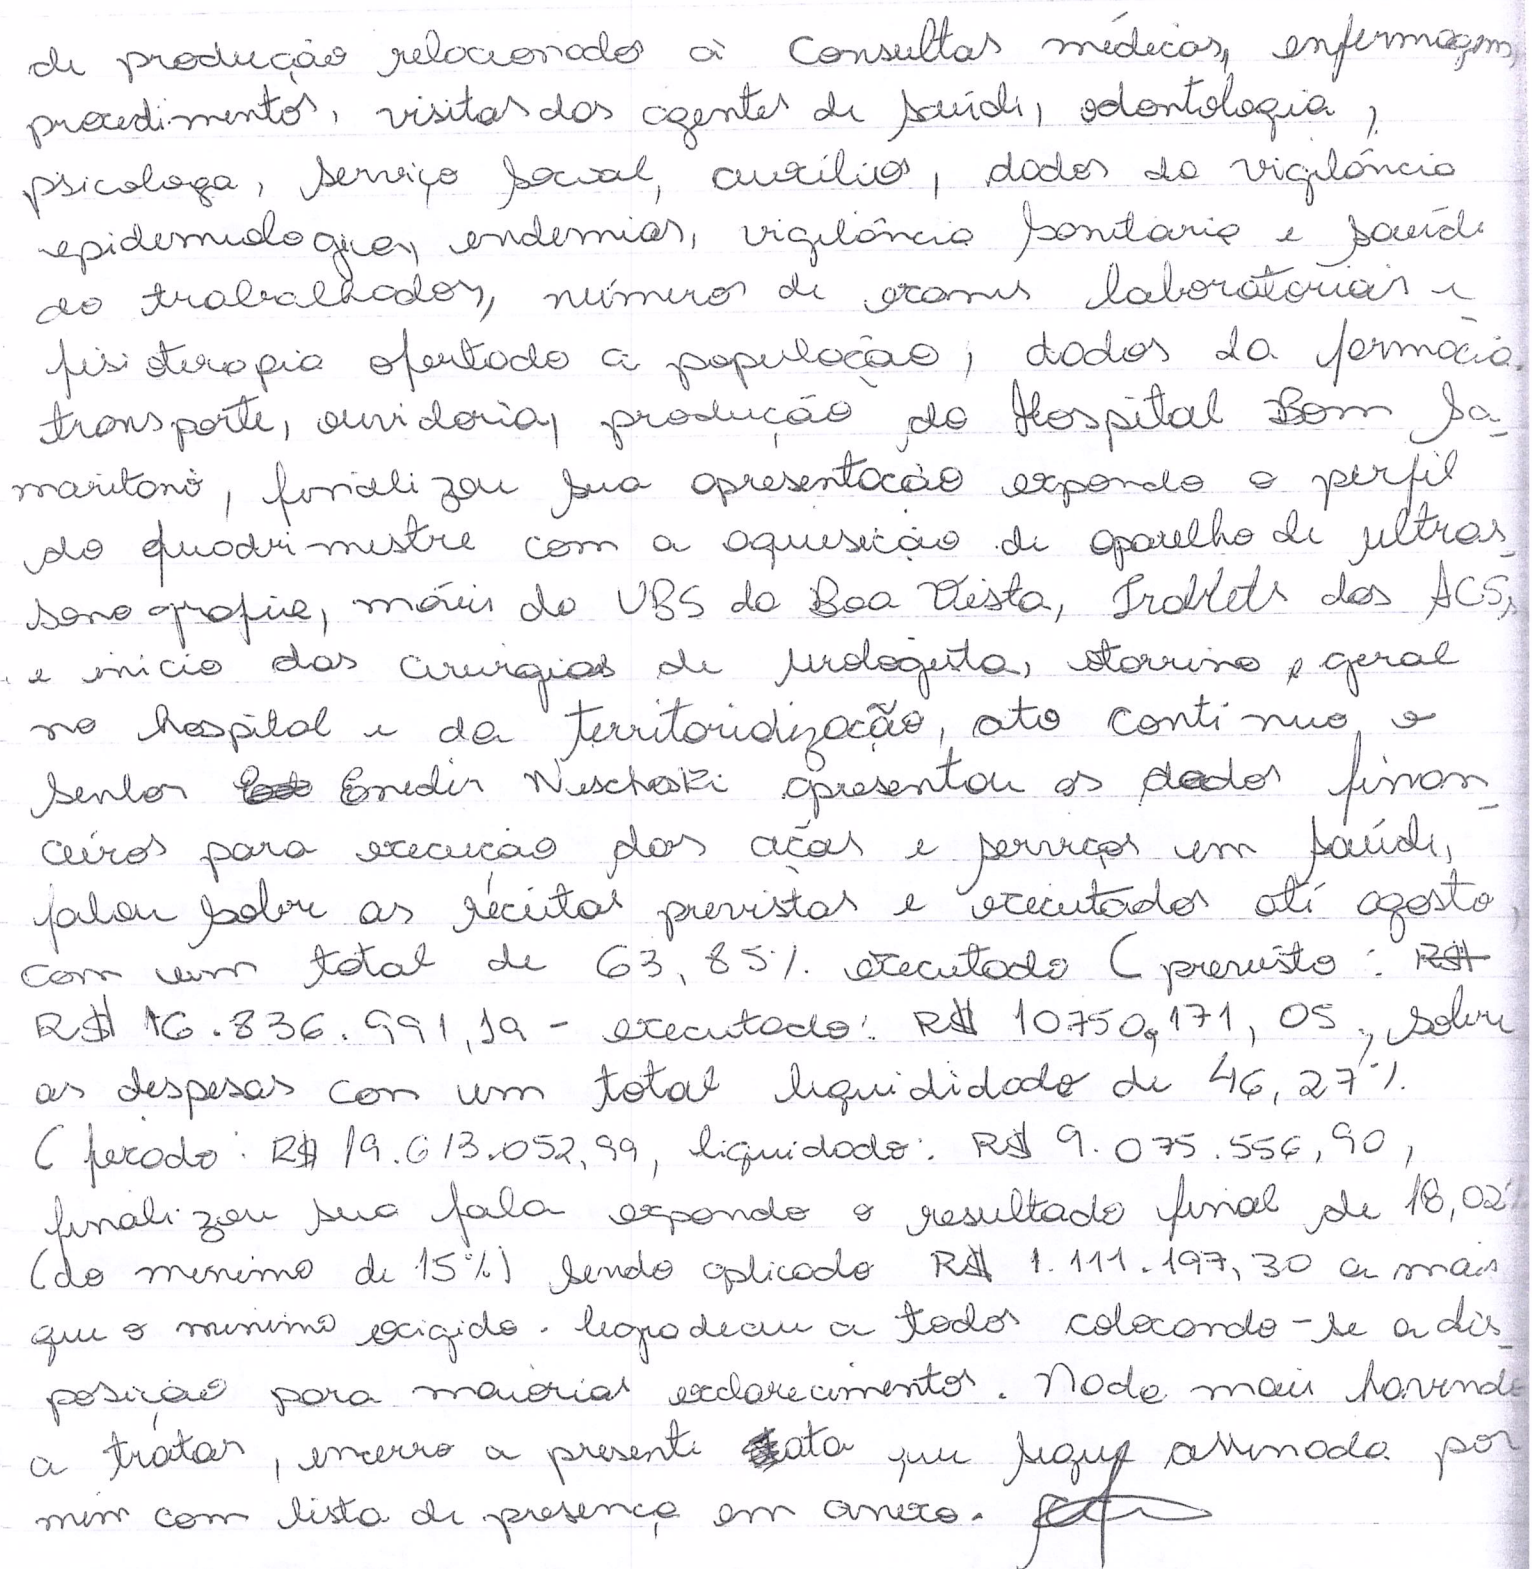 de produção relacionado à Consultas médicas, enfermagem,
procedimentos, visitas dos agentes de saúde, odontologia,
psicologa, serviço social, auxílios, dados da vigilância
epidemiologica, endemias, vigilância sanitaria e saúde
do trabalhador, números de exames laboratoriais e
fisioterapia ofertado a população, dados da farmácia
transporte, ouvidoria, produção do Hospital Bom Sa-
maritano, finalizou sua apresentação expondo o perfil
do quadrimestre com a aquisição de aparelho de ultras-
sonografia, móveis do UBS da Boa Vista, Trablets dos ACS,
e inicio das cirurgias de urologista, otorrino e geral
no hospital e da territorialização, ato continuo o
senhor Enedir apresentou os dados finan-
ceiros para execução das ações e serviços em saúde,
falou sobre as receitas previstas e executados até agosto,
com um total de 63,85% executado (previsto: R$
R$ 16.836.991,19 - executado: R$ 10750.171,05, sobre
as despesas com um total liquididado de 46,27%
( R$ 19.613.052,99, liquidado: R$ 9.075.556,90,
finalizou sua fala expondo o resultado final de 18,02%
(do minimo de 15%) sendo aplicado R$ 1.111.197,30 a mais
que o minimo exigido. Agradeceu a todos colocando-se a dis-
posição para maiorias esclarecimentos. Nada mais havendo
a tratar, encerro a presente ata que segue assinada por
mim com lista de presença em anexo.